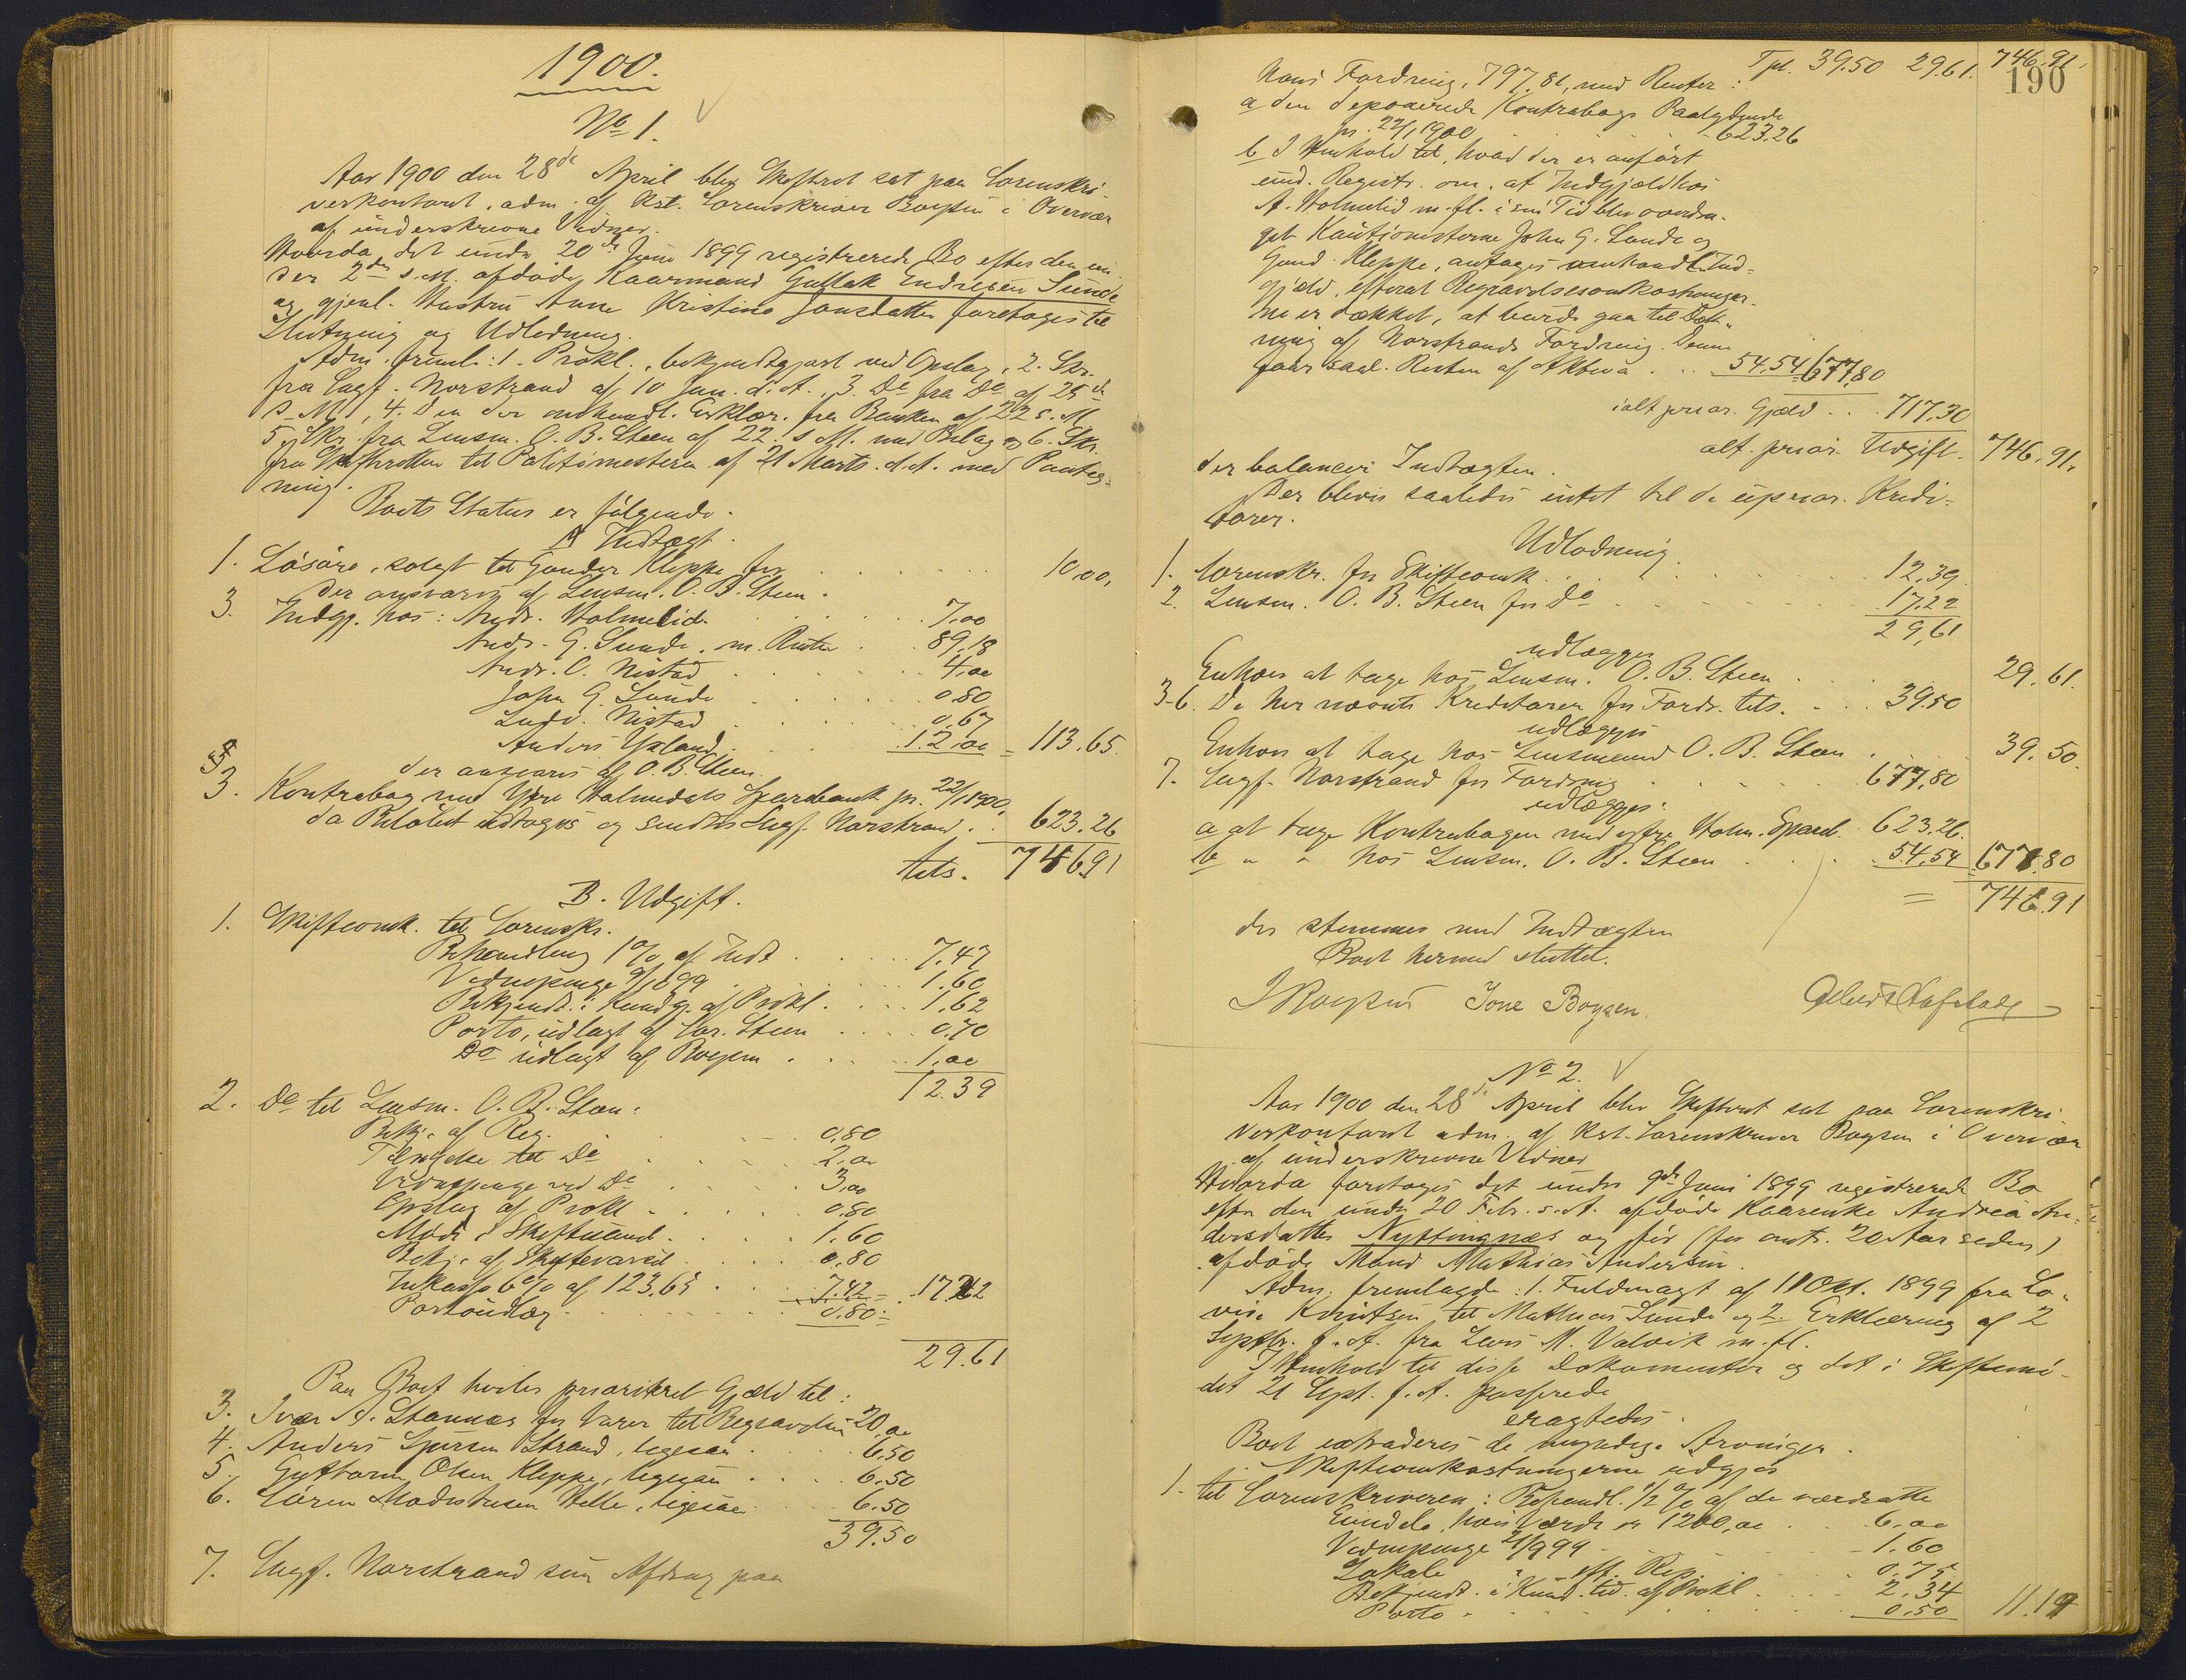 1900.
No 1.
Aar 1900 den 28de April blev Skifteret sat paa Sorenskri-
verkontoret, adm. af Kst. Sorenskriver Boysen i Overvær
af underskrevne Vidner.
Hvorda det under 20de Juni 1899 registrerede Bo efter den un-
der 2den s. M. afdøde Kaarmand Gullak Endresen Sunde
og gjenl. Hustru Anne Kristine Jonsdatter foretoges til
Slutning og Udlodning.
Adm. freml.: 1. Prokl., bekjendtgjort ved Opslag, 2. Skr.
fra Sagf. Norstrand af 10 Jan. d. A., 3. Do fra Do af 25de
s. M., 4. Den der omhandl. Erklær. fra Banken af 22 s. M.
5. Skr. fra Lensm. O. B. Steen af 22. s M. med Bilag og 6. Skr.
fra Skifteretten til Politimesteren af 21 Marts d. A. med Paateg-
ning.
Boets Status er følgende.
A Indtægt.
1. Løsøre, solgt til Gunder Kleppe for 10,00,
der ansvares af Lensm. O. B. Steen.
3. Indgj. hos: Andr. Holmelid 7,00
Andr. G. Sunde, m. Renter 89,18
Andr. O. Nistad 4,00
John G. Sunde 0.80
Ludv. Nistad 0,67
Anders Yxland 12,00 = 113.65.
der ansvares af O. B. Steen.
3. Kontrabog med Ytre Holmedals Sparebank pr. 22/1 1900,
da Beløbet udtoges og sendtes Sagf. Norstrand 623.26
tils. 746.91
B. Udgift.
1. Skifteomk. til Sorenskr.
Behandling 1% af Indt 7.47
Vidnepenge 9/1 99 1.60
Bekjendt. i Kundg. af Prokl. 1,62
Porto, udlagt af Sor. Steen 0,70
Do udlagt af Boysen 1,00
12.39
2. Do til Lensm. O. B. Steen:
Bekj. af Reg. 0,80
Tilsigelse til Do 2,00
Vidnepenge ved Do 3,00
Opslag af Prokl 0,80
Møde i Skifteaand 1.60
Bekj. af Skiftevarsel 0.80
Inkasso 6% af 123.65 7.42 = 17.22
Portoudlæg 0.80 =
29.61
Paa Boet hviler prioriteret Gjæld til:
3. Ivar A. Stavnes for Varer til Begravelsen 20,00
4. Anders Sjursen Strand, ligesaa 6.50
5. Guttorm Olsen Kleppe, ligesaa 6.50
6. Søren Modestusen Helle, ligesaa 6.50
39.50
7. Sagf. Norstrand som Afdrag paa
190
Tpt. 39.50 29.61. 746.91.
hans Fordring, 797.81, med Renter:
a den deponerede Kontrabogs Paalydende
pr. 22/1 1900 623.26
b I Henhold til, hvad der er anført
und. Registr. om, at Indgjæld hos
A. Holmelid m. fl. i sin Tid blev overdra-
get Kautionisterne John G. Sunde og
Gund. Kleppe, antages omhandl. Ind-
gjæld, efterat Begravelsesomkostninger-
ne er dækket, at burde gaa til Dæk-
ning af Norstrands Fordring. Denne
faar saal. Resten af Aktiva 54.54 677.80
ialt prior. Gjæld 717.30
alt. prior. Udgift 746.91.
der balancerer Indtægten.
Der blever saaledes intet til de uprior. Kredi-
torer.
Udlodning
1. Sorenskr. for Skifteomk. 12.39
2. Lensm. O. B. Steen for Do 17.22
29,61
udlægges
Enhver at tage hos Lensm. O. B. Steen 29.61.
3-6. De her nævnte Kreditorer for Fordr. tils. 39.50
udlægges
Enhver at tage hos Lensmand O. B. Steen 39.50.
7. Sagf. Norstrand for Fordring 677,80
udlægges:
a at tage Kontrabogen med ytre Holm. Spareb. 623.26.
b " " hos Lensm. O. B. Steen 54.54 677.80
= 746.91
der stemmer med Indtægten
Boet hermed sluttet.
J Boysen Tone Boysen.
No 2.
Aar 1900 den 28de April blev Skifteret sat paa Sorenskri-
verkontoret adm. af Kst. Sorenskriver Boysen i Overvær
af underskrevne Vidner
Hvorda foretoges det under 9de Juni 1899 registrerede Bo
efter den under 20 Febr. s. A. afdøde Kaarenke Andrea An-
dersdatter Nyttingnæs og før (for omtr. 20 Aar siden)
afdøde Mand Mathias Andersen.
Adm. fremlagde: 1. Fuldmagt af 11 Okt. 1899 fra Lo-
vise Knutsen til Mathias Sunde og 2. Erklæring af 2
Septbr. f. A. fra Lars M. Valvik m. fl.
I Henhold til disse Dokumenter og det i Skiftemø-
det 21 Sept. f. A. passerede
eragtedes.
Boet extraderes de myndige Arvinger.
Skifteomkostningerne udgjør
1. til Sorenskriveren: Behandl. 1/2 % af deværdsatte
Eiendele, hvis Værdi er 1200,00 6.00
Vidnepenge 21/9 99 1.60
Lokale " eft. Rep. 0.75
Bekjendt. i Kund. tid. af Prokl 2.34
Porto 0.50 11.19